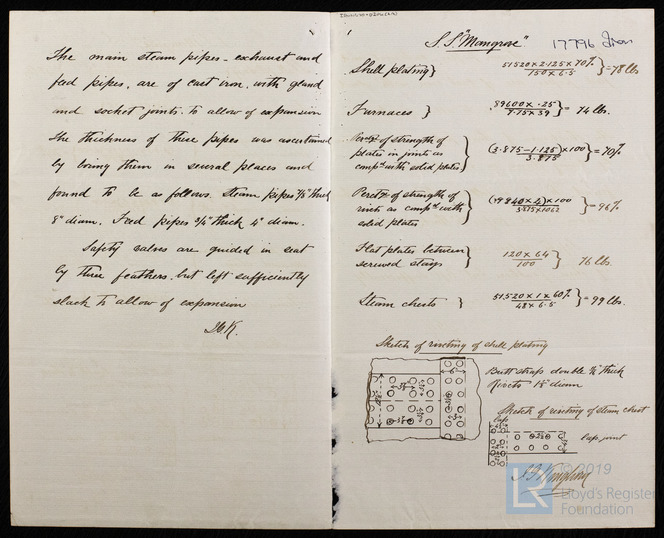 The main steam pipes - exhaust and
feed pipes, are of cast iron, with gland
and socket joints to allow of expansion
The thickness of these pipes was ascertained
by boring them in several places and
found to be as follows. Steam pipes 7/8" thick
8" diam. Feed pipes 3/4" thick 4" diam.
Safety valves are guided in seat
by three feathers, but left sufficiently
slack to allow of expansion
S.S. "Mangrove" 17796 Iron
Shell plating } 51520 x 2.125 x 70% / 150 x 6.5 } = 78 lbs
Furnaces } 89600 x .25 / 7.75 x 39 } = 74 lbs.
Percge of strength of
plates in joints as
compd with solid plates } (3.875 - 1.125) x 100 / 3.875 } = 70%
Percge of strength of
rivets as compd with
solid plates } x 100 = 96%
Flat plates between
screwed stays } 120 x 64 / 100 } 76 lbs.
Steam chests } 51.520 x 1 x 60% / 48 x 6.5 } = 99 lbs.
Sketch of riveting of shell plating
Butt straps double thick
Rivets 1 1/8" diam
Sketch of riveting of steam chest
Lap joint
© 2019
LR
Lloyd's Register
Foundation